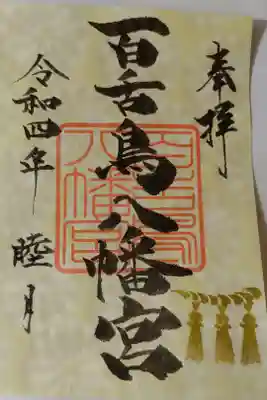 奉拝
百舌鳥八幡宮
令和四年 睦月
百舌鳥八幡宮